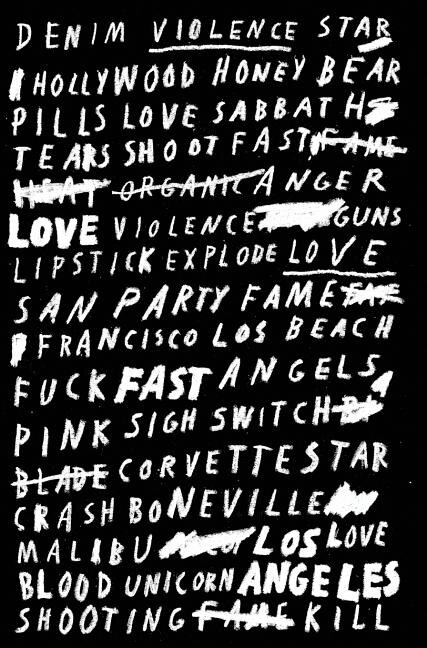 DENIM VIOLENCE STAR
HOLLYWOOD HONEY BEAR
PILLS LOVE SABBATH
TEARS SHOOT FAST FAME
HEAT ORGANIC ANGER
LOVE VIOLENCE GUNS
LIPSTICK EXPLODE LOVE
SAN PARTY FAME
FRANCISCO LOS BEACH
FUCK FAST ANGELS
PINK SIGH SWITCH
BLADE CORVETTE STAR
CRASH BONNEVILLE
MALIBU LOS LOVE
BLOOD UNICORN ANGELES
SHOOTING FAME KILL